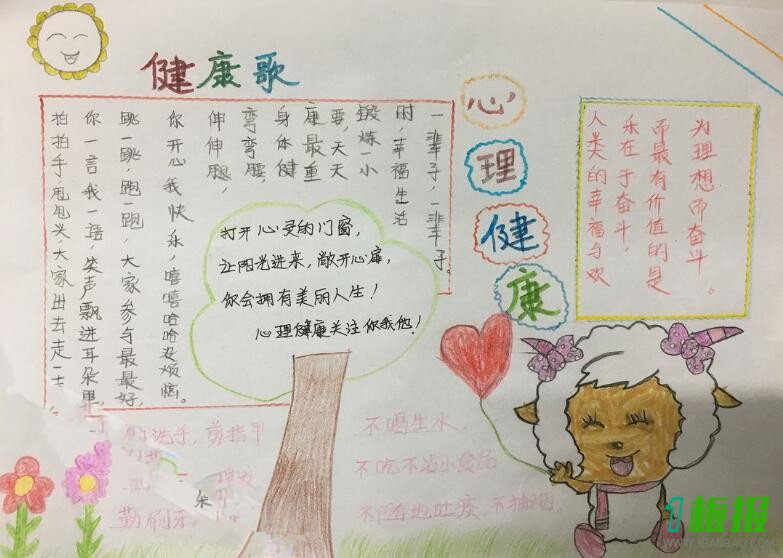 健康歌
拍拍手,甩甩头,大家出去走一走
你一言我一语,笑声飘进耳朵里
跳一跳,跑一跑,大家参与最最好,
你开心,我快乐,嘻嘻哈哈没烦恼。
伸伸腿,
弯弯腰,
身体健
康最重
要,天天
锻炼一小
时,幸福生活
一辈子,一辈子。
打开心灵的门窗,
让阳光进来,敞开心扉,
你会拥有美丽人生!
心理健康关注你我他!
心
理
健
康
人类的幸福与欢
乐在于奋斗,
而最有价值的是
为理想而奋斗。
洗手,剪指甲
勤刷牙
不喝生水,
不吃不沾小食品
不随地吐痰,不抽烟
1板报
WWW.1BANBAO.COM